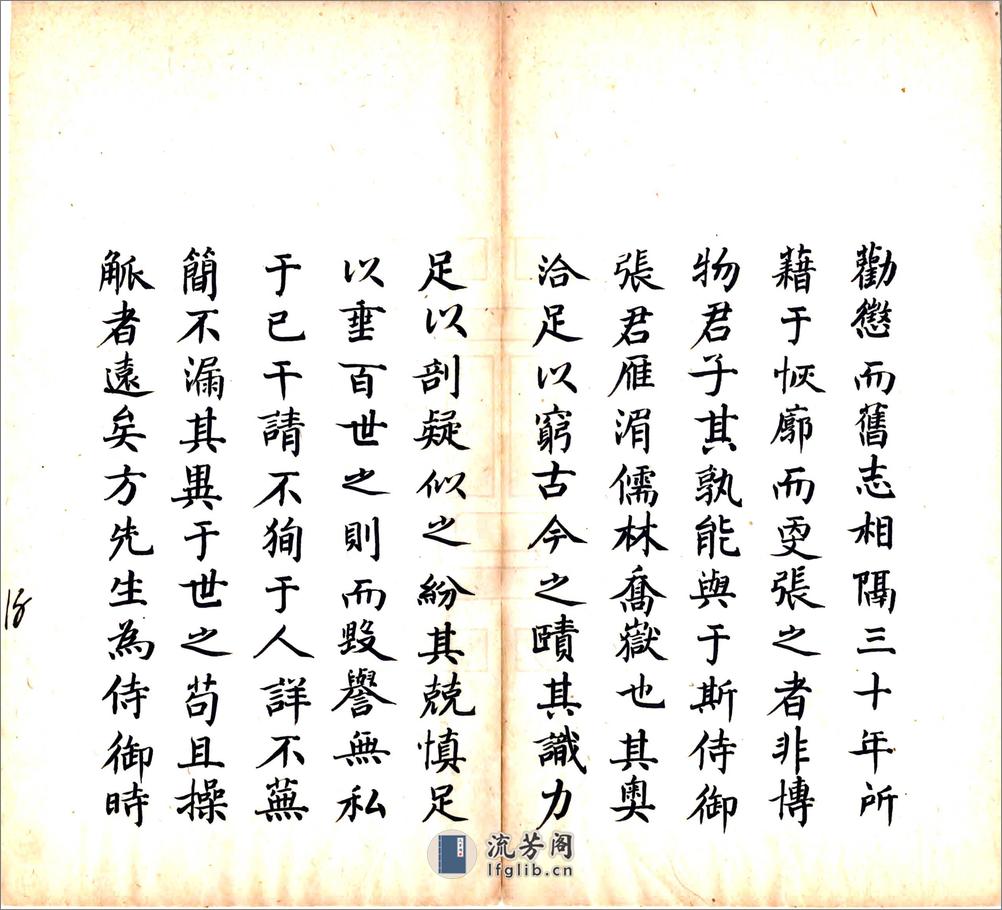 勸懲而舊志相隔三十年所
藉于恢廓而更張之者非博
物君子其孰能與于斯侍御
張君雁湄儒林喬嶽也其奧
洽足以窮古今之賾其識力
足以剖疑似之紛其兢慎足
以垂百世之則而毀譽無私
于已干請不狥于人詳不蕪
簡不漏其異于世之茍且操
觚者遠矣方先生為侍御時
流芳阁
lfglib.cn